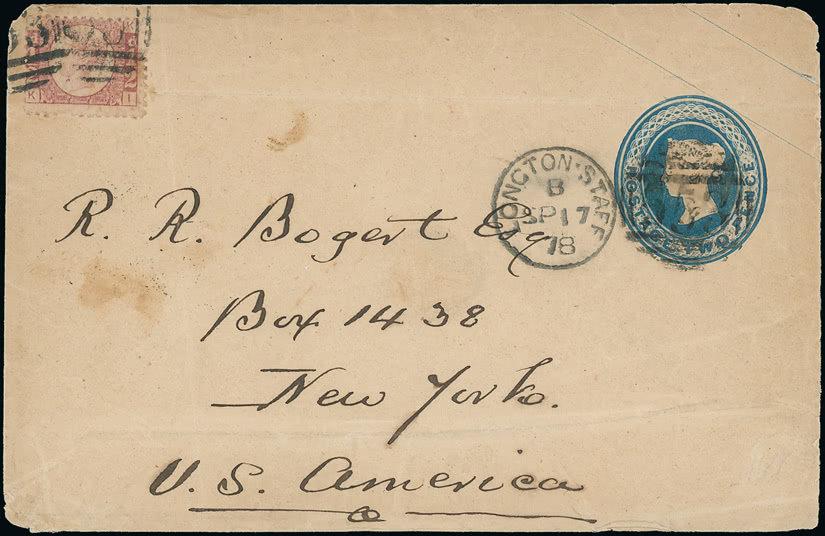 K I
POSTAGE TWO PENCE
LONGTON·STAFF
B
SP 17
78
R. R. Bogert Esq
Box 1438
New York.
U. S. America